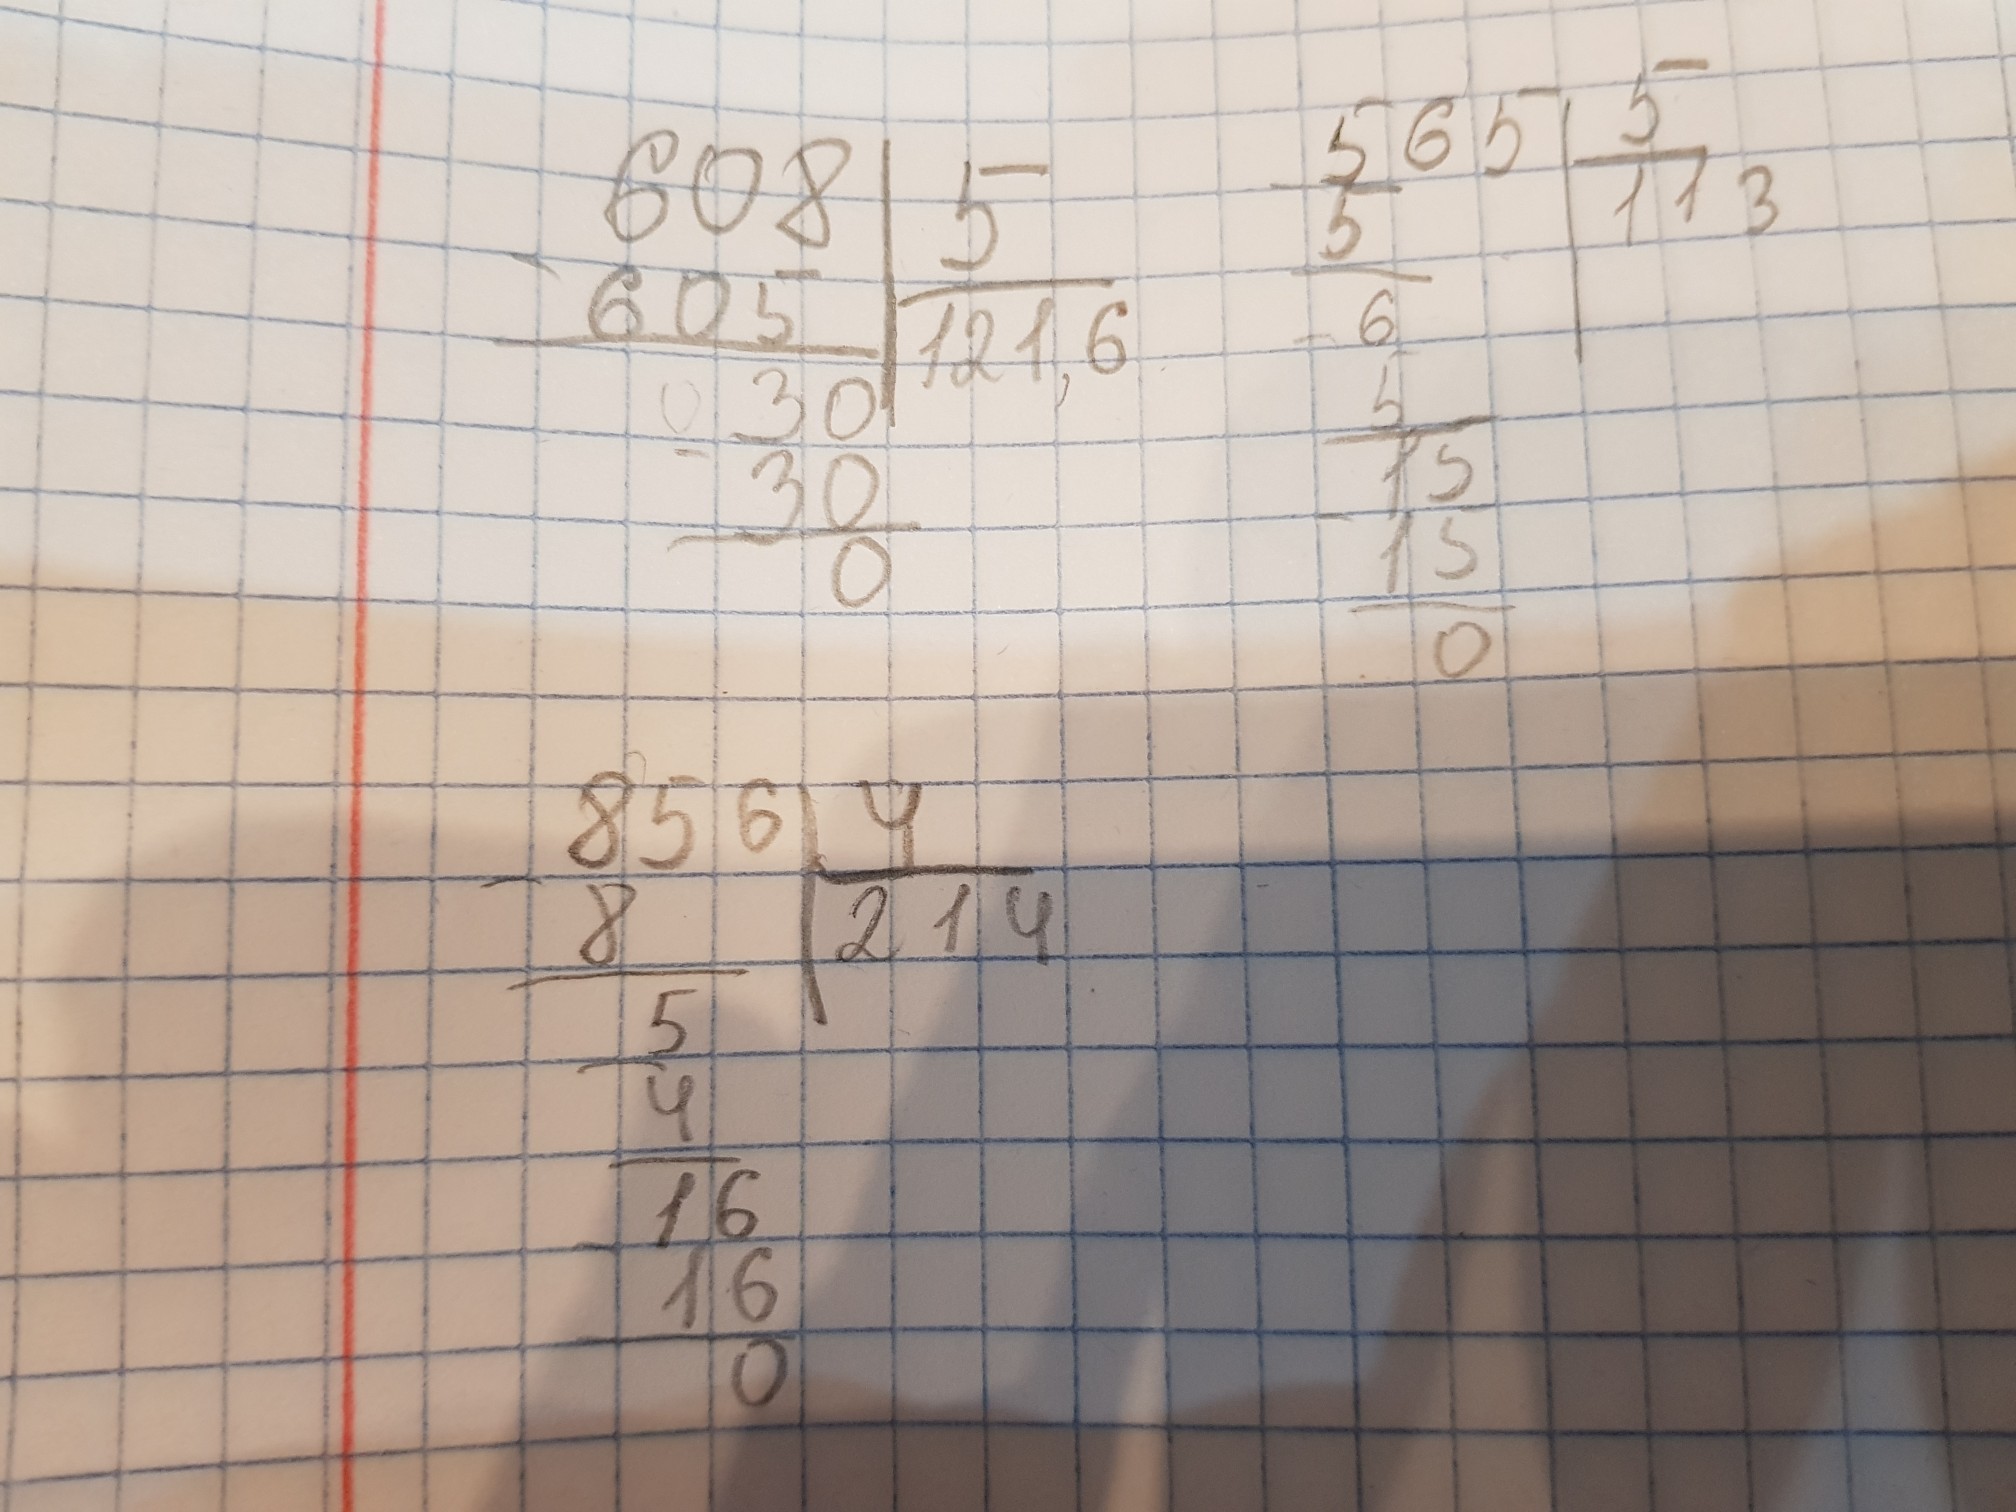 608 5
- 605 121,6
0 30
- 30
0
- 565 5
5 113
- 6
5
15
- 15
0
- 856 4
8 214
- 5
4
- 16
16
0